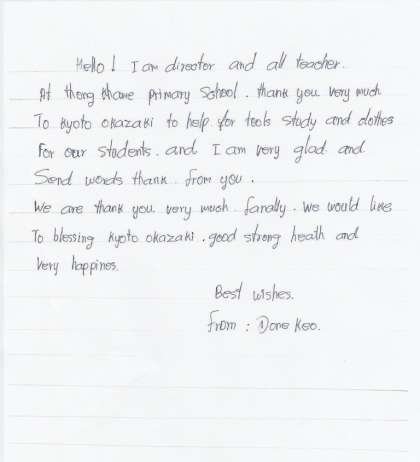 Hello! I am director and all teacher.
At thong khame primary School. thank you very much
To kyoto okazaki to help for tools study and clothes
For our students. and I am very glad and
Send words thank from you.
We are thank you very much fanally. We would like
To blessing kyoto okazaki. good strong heath and
Very happines.
Best wishes.
From : Done Keo.